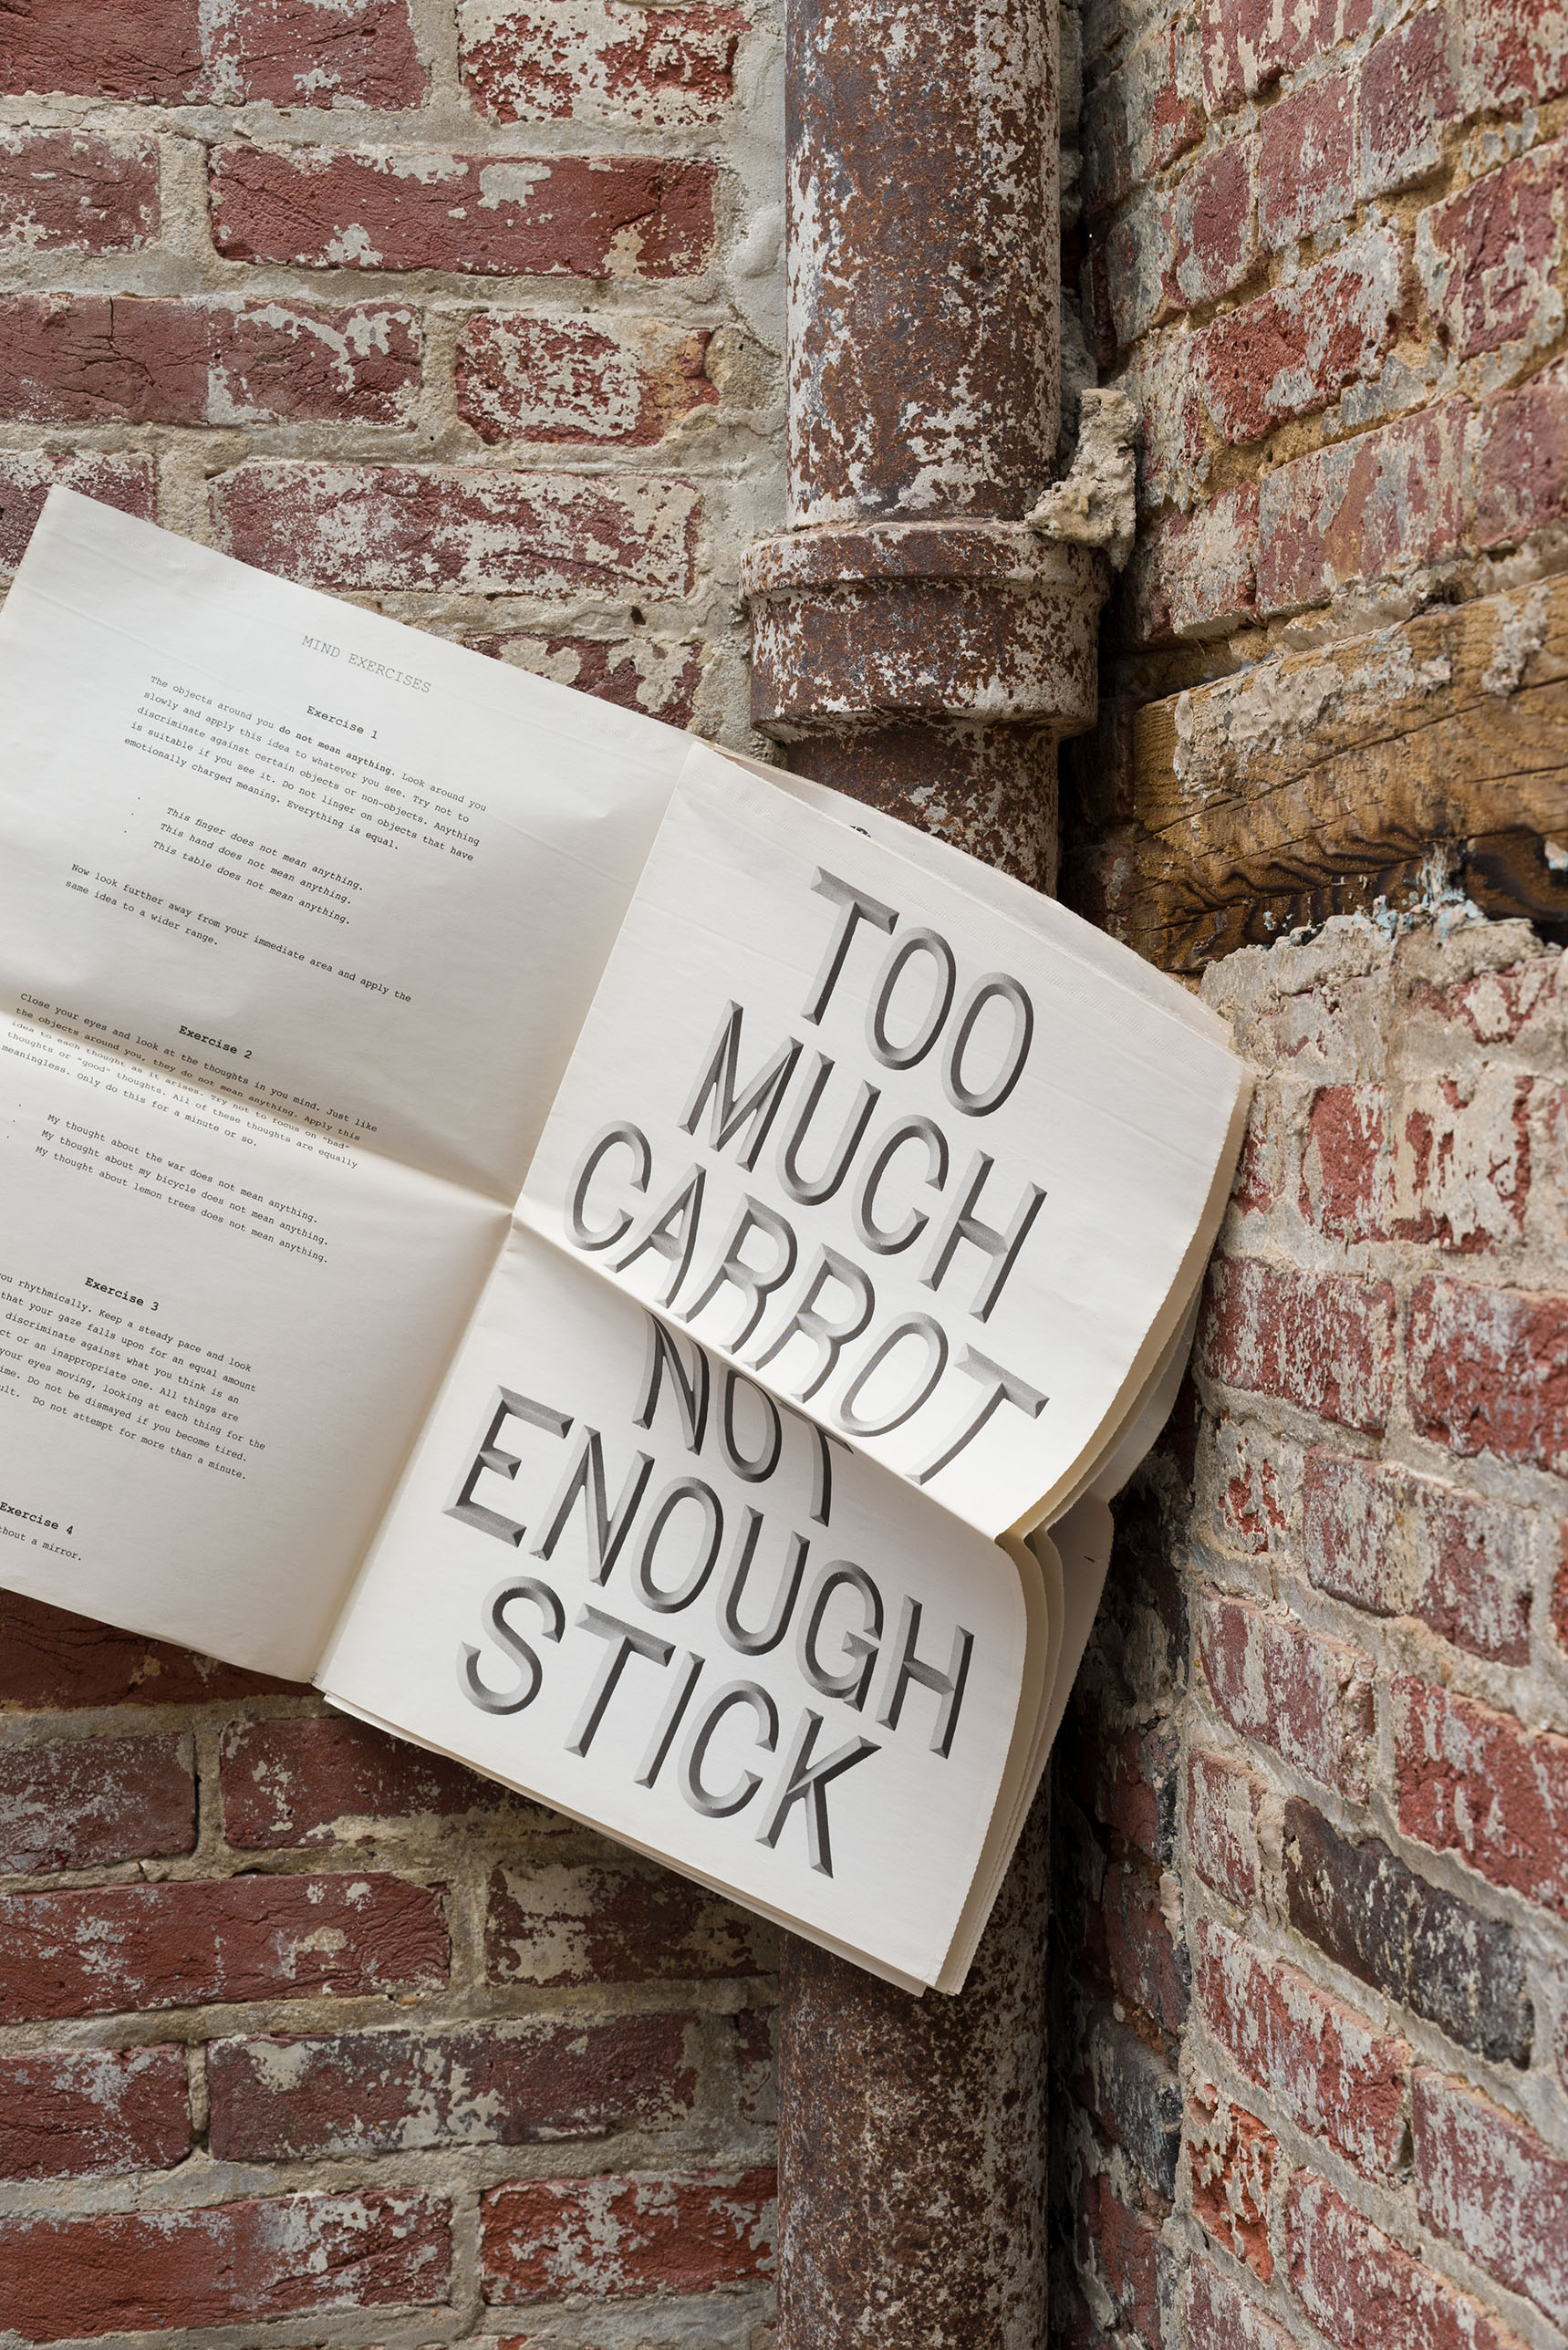 MIND EXERCISES
Exercise 1
The objects around you do not mean anything. Look around you
slowly and apply this idea to whatever you see. Try not to
discriminate against certain objects or non-objects. Anything
is suitable if you see it. Do not linger on objects that have
emotionally charged meaning. Everything is equal.
· This finger does not mean anything.
· This hand does not mean anything.
· This table does not mean anything.
Now look further away from your immediate area and apply the
same idea to a wider range.
Exercise 2
Close your eyes and look at the thoughts in you mind. Just like
the objects around you, they do not mean anything. Apply this
idea to each thought as it arises. Try not to focus on "bad"
thoughts or "good" thoughts. All of these thoughts are equally
meaningless. Only do this for a minute or so.
· My thought about the war does not mean anything.
· My thought about my bicycle does not mean anything.
· My thought about lemon trees does not mean anything.
Exercise 3
you rhythmically. Keep a steady pace and look
that your gaze falls upon for an equal amount
discriminate against what you think is an
or an inappropriate one. All things are
your eyes moving, looking at each thing for the
Do not be dismayed if you become tired.
Do not attempt for more than a minute.
Exercise 4
a mirror.
TOO
MUCH
CARROT
NOT
ENOUGH
STICK